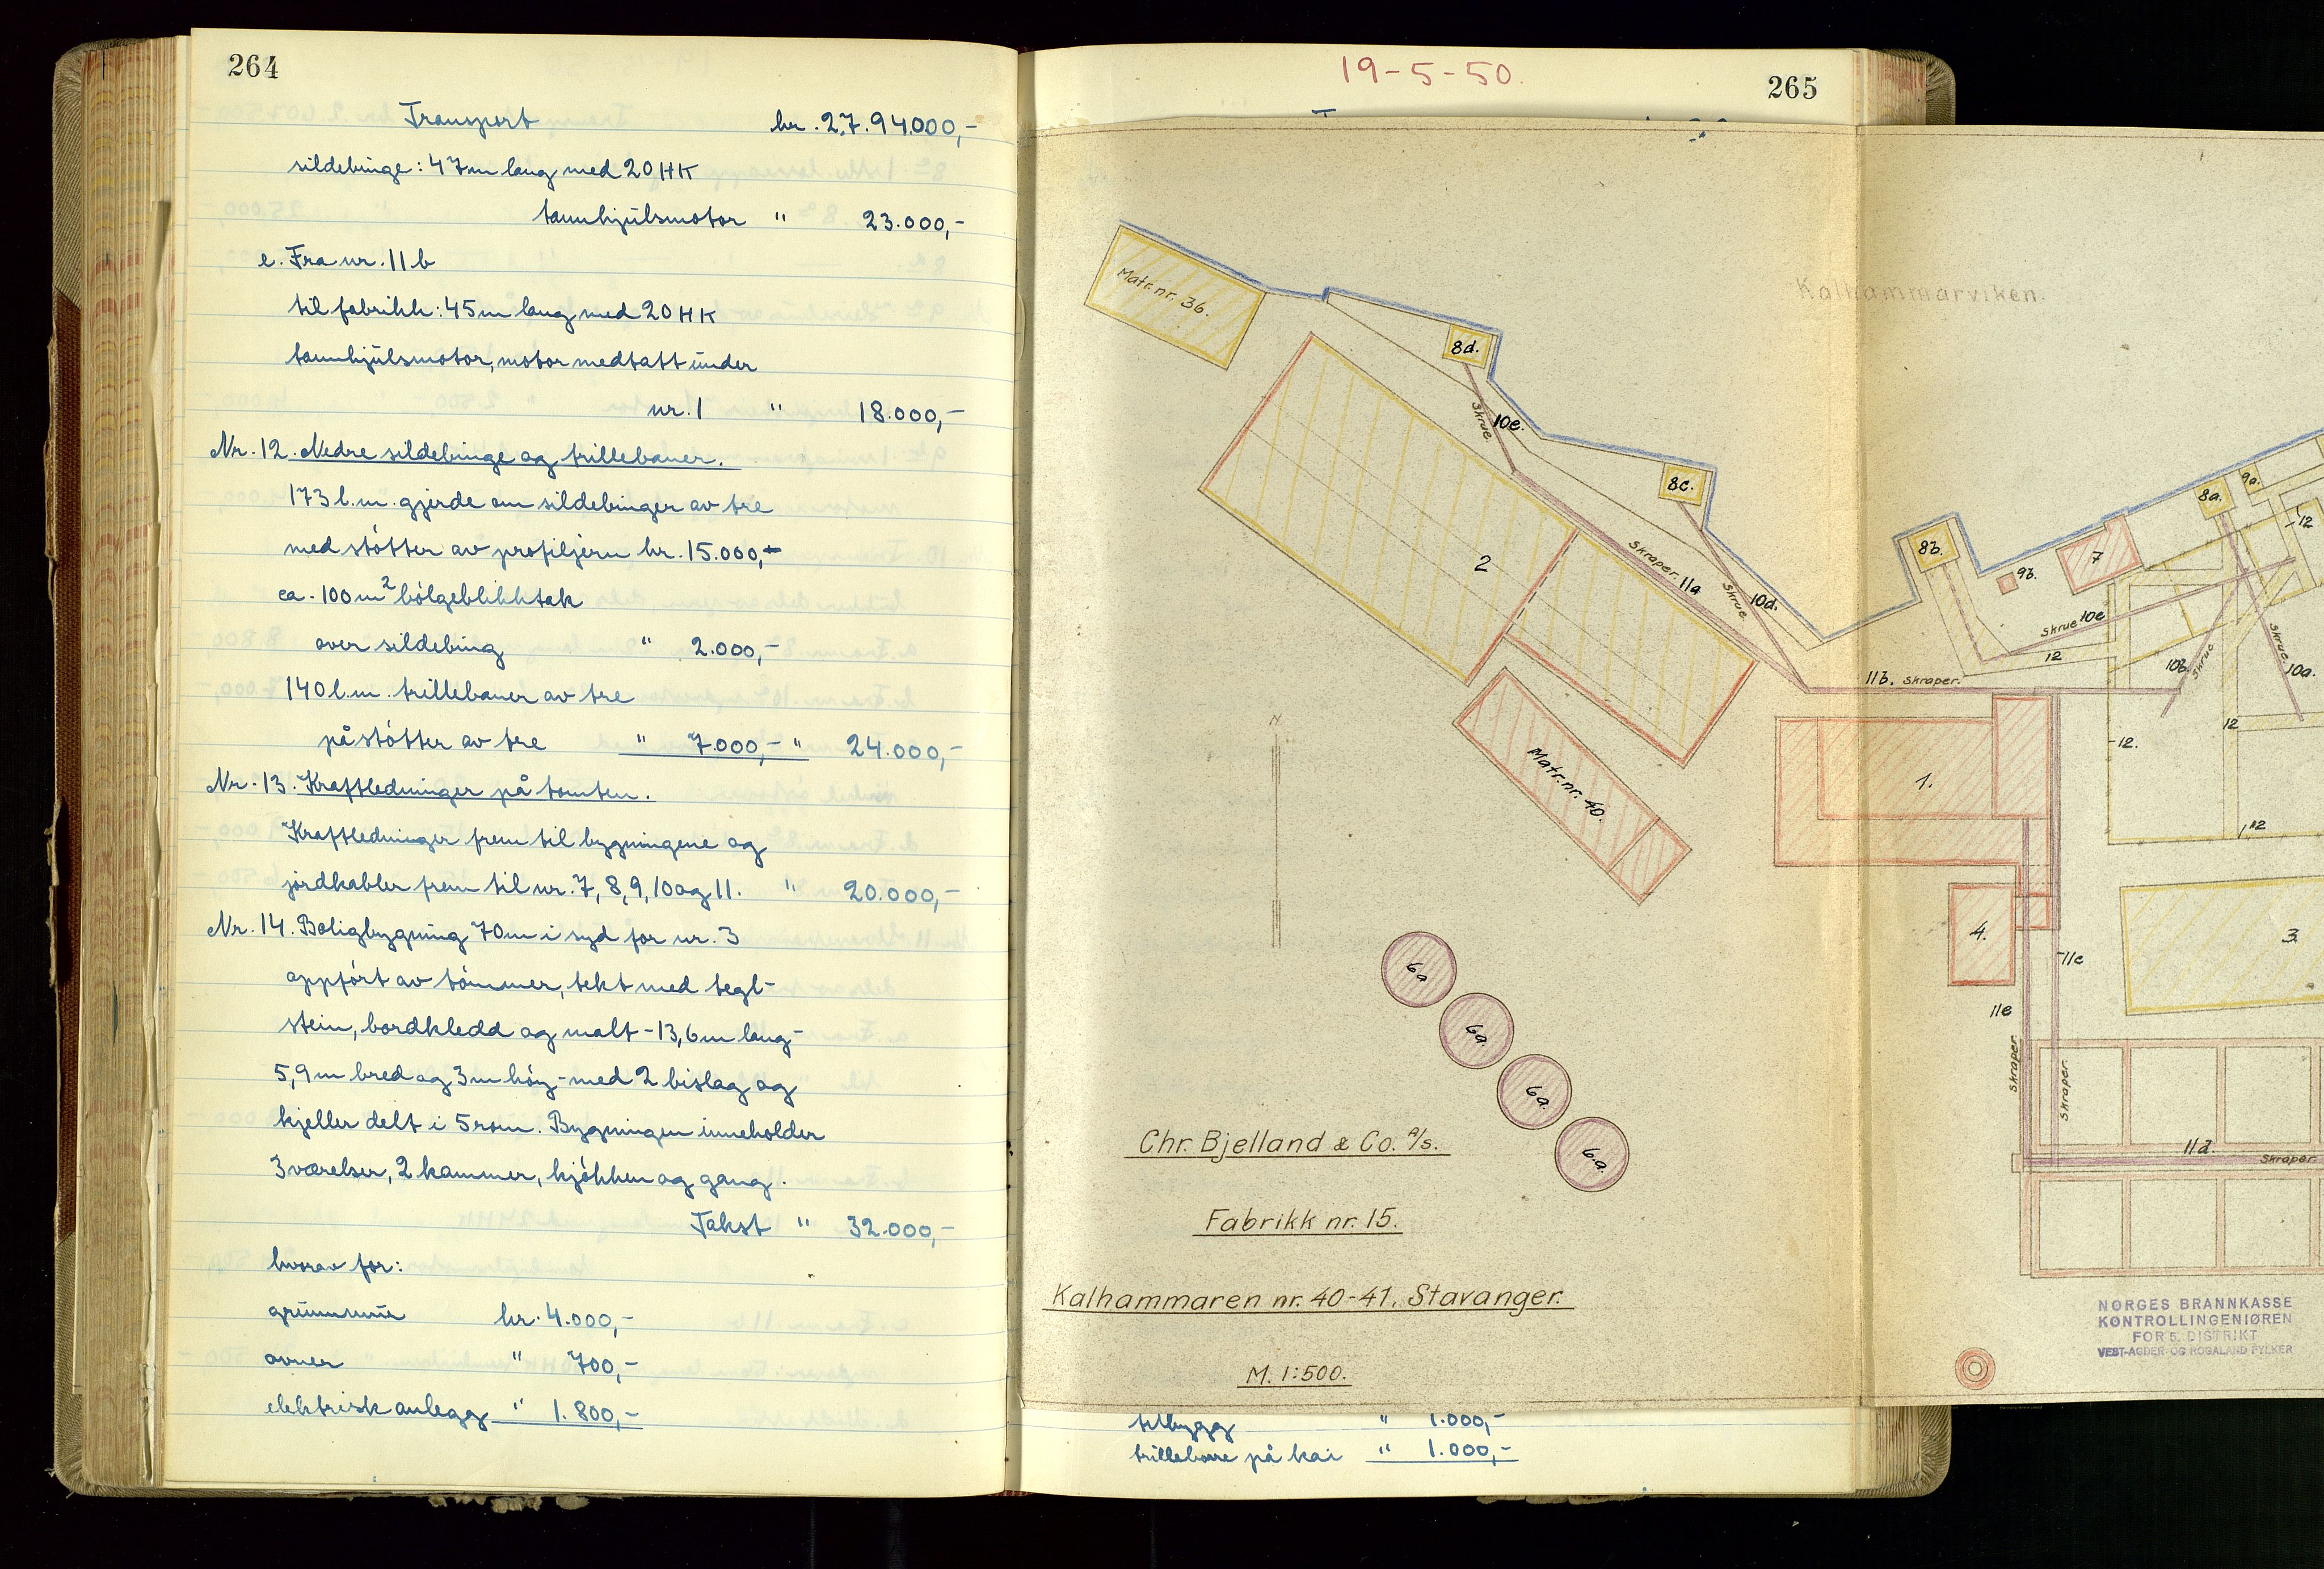 264
Transport kr. 2.794.000,-
sildebinge: 47m lang med 20 HK
tannhjulsmotor " 23.000,-
e. Fra nr. 11 b
til fabrikk: 45 m lang med 20 HK
tannhjulsmotor, motor medtatt under
nr. 1 " 18.000,-
Nr. 12. Nedre sildebinge og trillebaner.
173 l.m. gjerde om sildebinger av tre
med støtter av profiljern kr. 15.000,-
ca. 100 m² bølgeblikktak
over sildebing " 2.000,-
140 l.m. trillebaner av tre
på støtter av tre " 7.000,- " 24.000,-
Nr. 13. Kraftledninger på tomten.
Kraftledninger frem til bygningene og
jordkabler frem til nr. 7, 8, 9, 10 og 11. " 20.000,-
Nr. 14. Boligbygning 70m i syd for nr. 3
oppført av tømmer, tekt med tegl-
stein, bordkledd og malt - 13,6m lang -
5,9 m bred og 3m høy - med 2 bislag og
kjeller delt i 5 rom. Bygningen inneholder
3 værelser, 2 kammer, kjøkken og gang.
Takst " 32.000,-
hvorav for:
grunnmur kr. 4.000,-
ovner " 700,-
elektrisk anlegg " 1.800,-
19-5-50.
265
Kalhammarviken.
Matr. nr. 36.
8d.
Skrue.
10e.
8c.
2
Skraper.
11a
Skrue
10d.
8b.
9b.
7
8a.
9a.
12
Skrue 10c
12
10b.
Skrue
Skrue
10a.
11b. Skraper.
N
Matr. nr. 40.
1.
12.
12
12
4.
3.
11c
11e
Skraper.
Skraper.
11d.
Skraper.
6a
6a.
6a.
6.a.
Chr. Bjelland & Co. A/s.
Fabrikk nr. 15.
Kalhammaren nr. 40-41. Stavanger.
M. 1:500.
NORGES BRANNKASSE
KONTROLLINGENIØREN
FOR 5. DISTRIKT
VEST-AGDER OG ROGALAND FYLKER
tilbygg " 1.000,-
trillebane på kai " 1.000,-